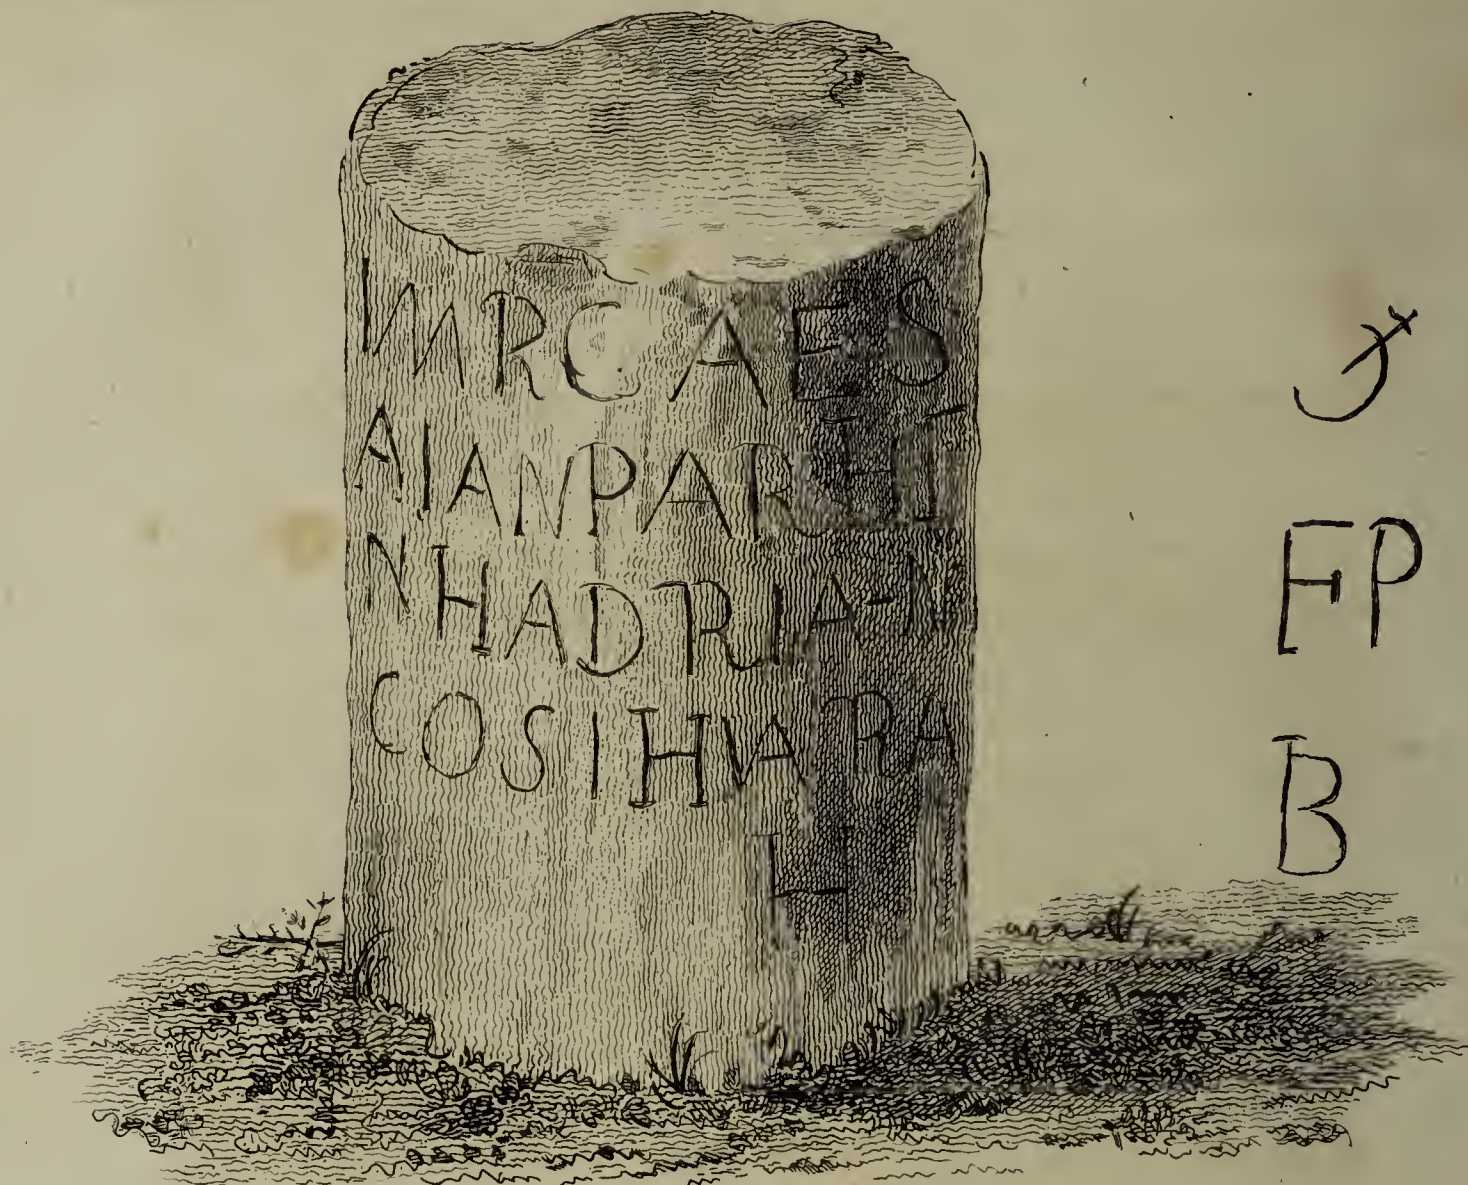 IMRCAES
AIANPARTHT
NHADRIAN
COSIHVARA
LI
FP
B